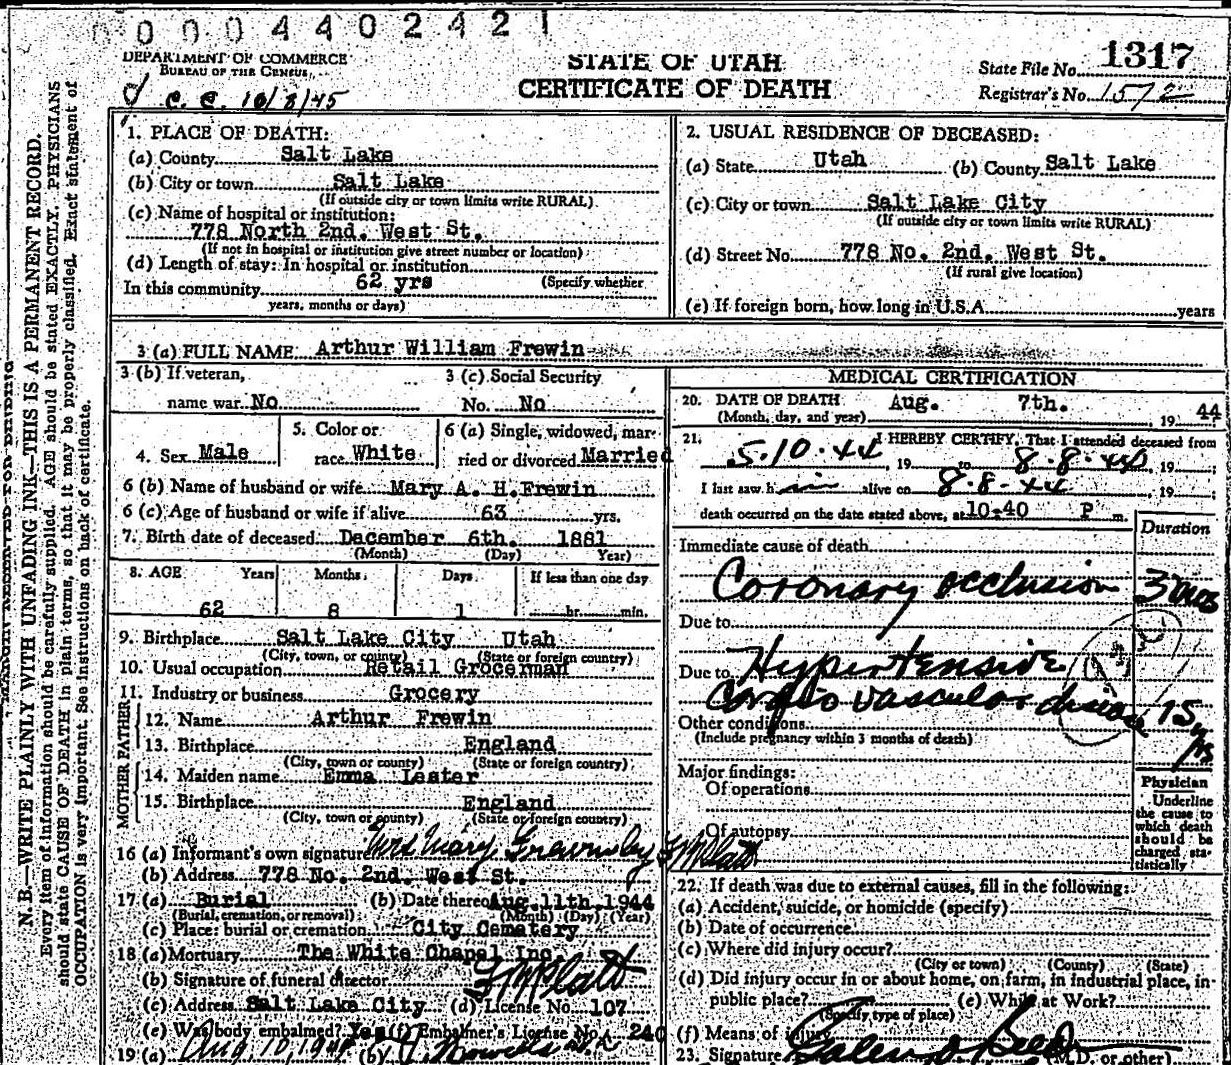 0004402421
DEPARTMENT OF COMMERCE
BUREAU OF THE CENSUS
C. C. 10/8/45
STATE OF UTAH
CERTIFICATE OF DEATH
State File No. 1317
Registrar's No. 1572
N. B.—WRITE PLAINLY WITH UNFADING INK—THIS IS A PERMANENT RECORD.
Every item of information should be carefully supplied. AGE should be stated EXACTLY. PHYSICIANS
should state CAUSE OF DEATH in plain terms, so that it may be properly classified. Exact statement of
OCCUPATION is very important. See instructions on back of certificate.
1. PLACE OF DEATH:
(a) County Salt Lake
(b) City or town Salt Lake
(If outside city or town limits write RURAL)
(c) Name of hospital or institution:
778 North 2nd. West St.
(If not in hospital or institution give street number or location)
(d) Length of stay: In hospital or institution
(Specify whether
In this community 62 yrs
years, months or days)
2. USUAL RESIDENCE OF DECEASED:
(a) State Utah (b) County Salt Lake
(c) City or town Salt Lake City
(If outside city or town limits write RURAL)
(d) Street No. 778 No. 2nd. West St.
(If rural give location)
(e) If foreign born, how long in U.S.A. years
3 (a) FULL NAME Arthur William Frewin
3 (b) If veteran,
name war No
3 (c) Social Security
No. No
4. Sex Male
5. Color or
race White
6 (a) Single, widowed, mar-
ried or divorced Married
6 (b) Name of husband or wife Mary A. H. Frewin
6 (c) Age of husband or wife if alive 63 yrs.
7. Birth date of deceased December 6th. 1881
(Month) (Day) Year)
8. AGE Years Months Days If less than one day
62 8 1 hr. min.
9. Birthplace Salt Lake City Utah
(City, town, or county) (State or foreign country)
10. Usual occupation Retail Grocerman
11. Industry or business Grocery
FATHER
12. Name Arthur Frewin
13. Birthplace England
(City, town or county) (State or foreign country)
MOTHER
14. Maiden name Emma Lester
15. Birthplace England
(City, town or county) (State or foreign country)
16 (a) Informant's own signature Mrs Mary by
(b) Address 778 No. 2nd. West St.
17 (a) Burial (b) Date thereof Aug. 11th. 1944
(Burial, cremation, or removal) (Month) (Day) (Year)
(c) Place: burial or cremation City Cemetery
18 (a) Mortuary The White Chapel Inc
(b) Signature of funeral director
(c) Address Salt Lake City (d) License No. 107
(e) Was body embalmed? Yes (f) Embalmer's License No. 240
19 (a) Aug 10, 1944 (b)
MEDICAL CERTIFICATION
20. DATE OF DEATH Aug. 7th. 1944
(Month, day, and year)
21. I HEREBY CERTIFY, That I attended deceased from
5-10-44, 19 to 8-8-44, 19
I last saw him alive on 8-8-44, 19
death occurred on the date stated above, at 10:40 P m.
Duration
Immediate cause of death
Coronary occlusion
Due to
Due to Hypertensive
Cardio vascular disease 15 yrs
Other conditions
(Include pregnancy within 3 months of death)
Major findings:
Of operations
Of autopsy
Physician
Underline
the cause to
which death
should be
charged sta-
tistically
22. If death was due to external causes, fill in the following:
(a) Accident, suicide, or homicide (specify)
(b) Date of occurrence
(c) Where did injury occur?
(City or town) (County) (State)
(d) Did injury occur in or about home, on farm, in industrial place, in
public place? (e) While at Work?
(Specify type of place)
(f) Means of injury
23. Signature (M.D. or other)